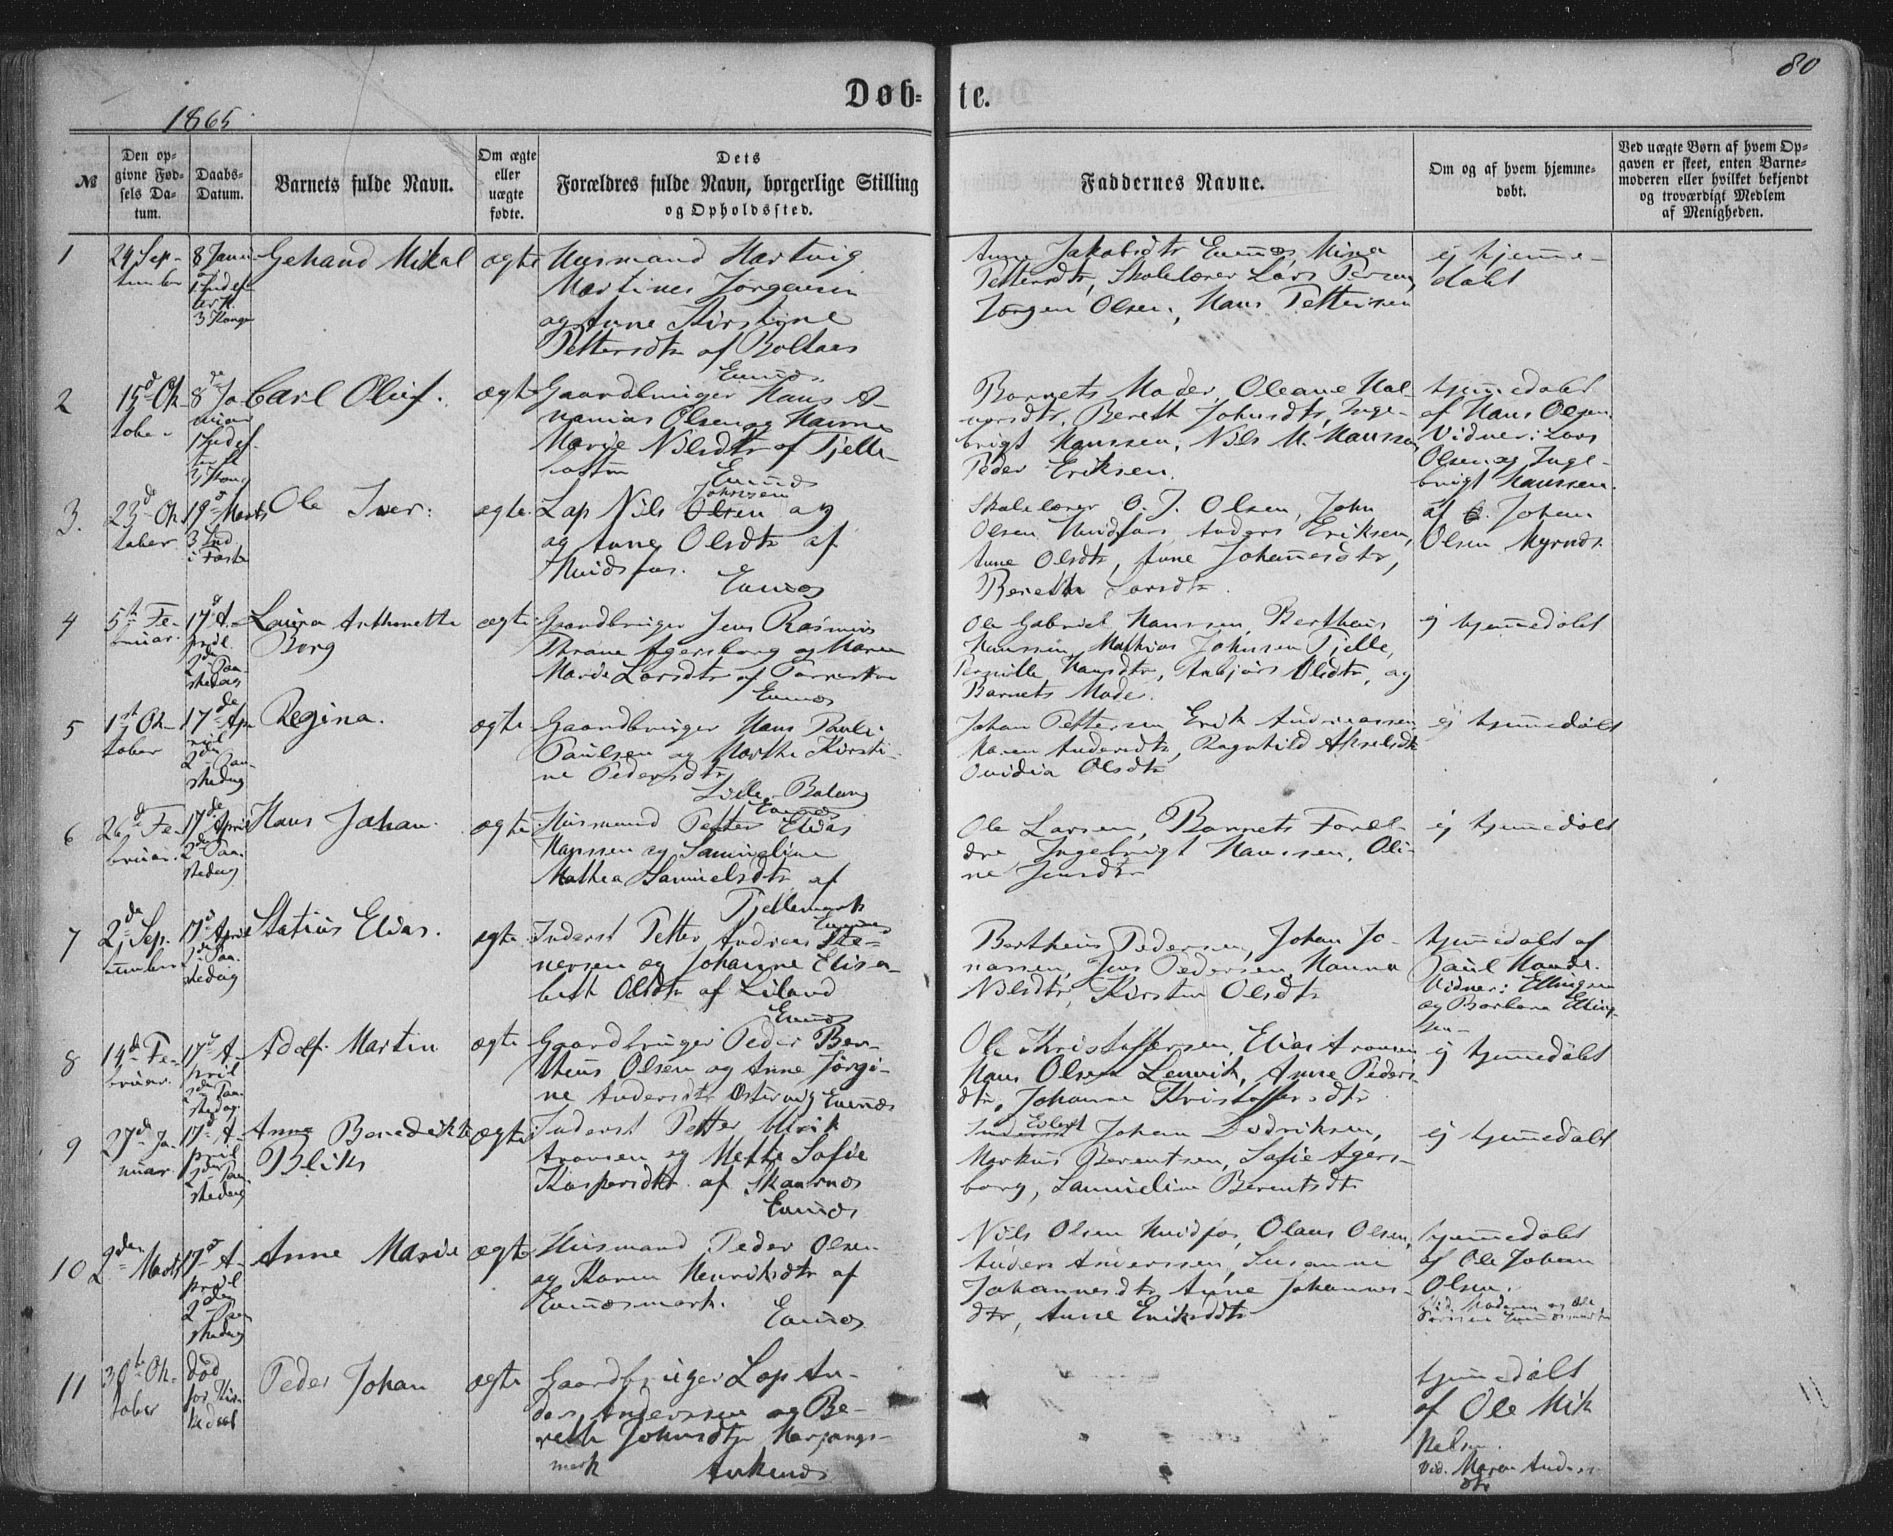 80
1865
Døb-te.
№
Den opgivne Fødsels Datum.
Daabs-Datum.
Barnets fulde Navn.
Om ægte eller uægte fødte.
Dets Forældres fulde Navn, borgerlige Stilling og Opholdssted.
Faddernes Navne.
Om og af hvem hjemmedøbt.
Ved uægte Børn af hvem Opgaven er skeet, enten Barnemoderen eller hvilket bekjendt og troværdigt Medlem af Menigheden.
1
24 September
8 Janu
Gehand Mikal
ægte
Husmand Hartvig
Martines Jørgensen
og Anne Kirstine
Pettersdtr af Boltaas
Evenæs
Anne Jakobsdtr Evenæs, Mina
Pettersdtr, Skolelærer Lars
Jørgen Olsen, Hans Pettersen
ej hjemmedøbt
2
15d Oktober
8de Januar
Carl Oluf.
ægte
Gaardbruger Hans A-
nanias Olsen og Hanna
Marie Nilsdtr af Tjelle-
botn
Evenæs
Barnets Moder, Oleane Hal-
vorsdtr, Bereth Johnsdtr, Inge-
brigt Hanssen, Nils M. Hanssen
Peder Eriksen.
hjemmedøbt
af Hans Olsen.
Vidner: Lars
Olsen og Inge-
brigt Hanssen.
3.
23d Oktober
19d Marts
3 Snd. i Faste
Ole Iver.
ægte.
Lap Nils Johnsen og
og Anne Olsdtr af
Hvidfos.
Evenæs
Skolelærer O. J. Olsen, John
Olsen Hvidfos, Anders Eriksen,
Anne Olsdtr, Anne Johannesdtr,
Beretha Larsdtr.
af Johan
Olsen
4
5te Februar.
17d April
2den Paaskedag
Laura Anthonette
Borg
ægte
Gaardbruger Jens Rasmus
Thrane Agersborg og Maren
Marie Larsdtr af
Evenæs
Ole Gabriel Hanssen, Bertheus
Hanssen, Mathias Johnsen Tjelle,
Pernille Hansdtr, Anbjør Olsdtr, og
Barnets Moder.
ej hjemmedøbt
5
1st Oktober
17de April
2den Paaskedag
Regina.
ægte
Gaardbruger Hans Pauli
Paulsen og Marthe Kirsti-
ne Pedersdtr
Lille Balang
Evenæs
Johan Pettersen Erik Andreassen
Maren Andersdtr, Ragnhild Akselsdtr
Ovidia Olsdtr
ej hjemmedøbt
6
26d Februar.
17de April
2den Paaskedag
Hans Johan.
ægte
Husmand Petter Elias
Hanssen og Samueline
Mathea Samuelsdtr af
Tjellemark
Evenæs
Ole Larsen, Barnets Foræl-
dre, Ingebrigt Hanssen, Oli-
ne Jensdtr
ej hjemmedøbt
7
2den September
17d April
2den Paaskedag
Statius Elias.
ægte
Inderst Petter Andreas
nersen og Johanne Elisa-
beth Olsdtr af Liland
Evenæs
Bertheus Pedersen, Johan Jo-
nassen, Jens Pedersen, Hanna
Nilsdtr, Kirsten Olsdtr
hjemmedøbt af
Paul
Vidner: Ellingsen
og Barbara Elling-
sen
8
14d Februar.
17d April
2den Paaskedag
Adolf Martin
ægte
Gaardbruger Peder Ber-
theus Olsen og Anne Jørgi-
ne Andersdtr Østervig Evenæs
Ole Kristoffersen, Elias Aronsen
Hans Olsen Lenvik, Anne Peders-
dtr, Johanne Kristoffersdtr
ej hjemmedøbt
9
27d Januar.
17d April
2den Paaskedag
Anna Benedikte
Bliks
ægte
Inderst Petter Ulrik
Aronsen og Mette Sofie
Kaspersdtr af Skaanæs
Evenæs
Johan Didriksen,
Markus Berentsen, Sofie Agers-
borg, Samueline Berentsdtr
ej hjemmedøbt
10
2den Marts
17d April
2den Paaskedag
Anne Marie
ægte
Husmand Peder Olsen
og Karen Henriksdtr af
Evenæsmark.
Evenæs
Nils Olsen Hvidfos, Olaus Olsen,
Anders Anderssen, Susanne
Johannesdtr, Anne Johannes-
dtr, Anne Eriksdtr
hjemmedøbt
af Ole Johan
Olsen.
Vid. Moderen og Ole
11
30te Oktober
død
Peder Johan
ægte
Gaardbruger Lap An-
ders Anderssen og Be-
reth Johnsdtr Herjangs-
mark
Ankenæs
hjemmedøbt
af Ole Mik-
kelsen.
Vid. Maren Anders-
dtr